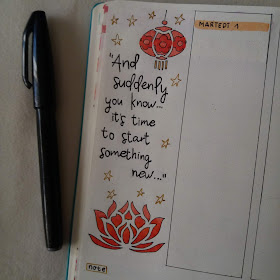 "And
suddenly
you know...
it's time
to start
something
new..."
note
MARTEDÌ 1